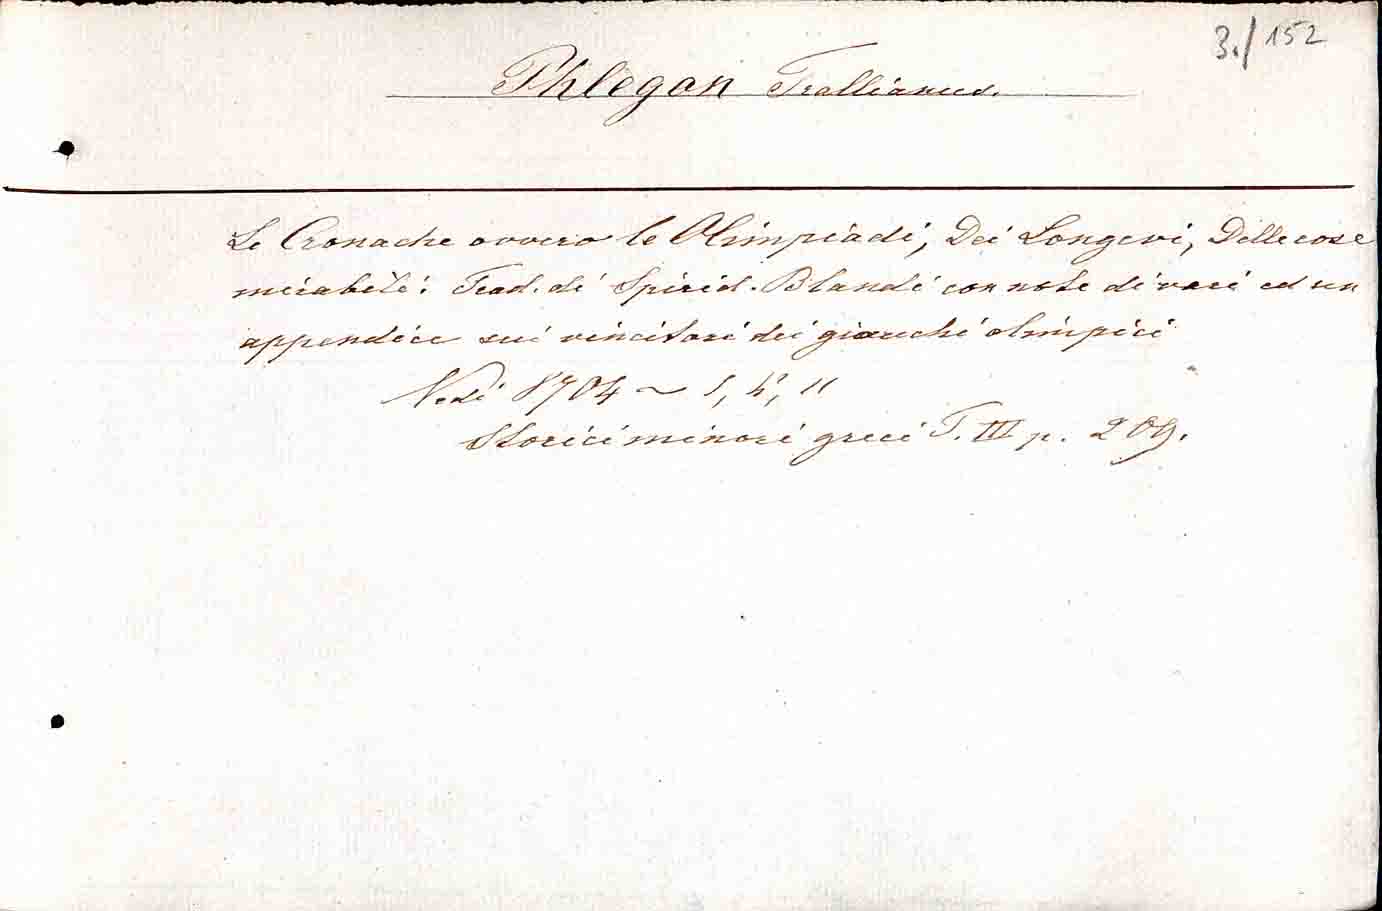 3./152
Phlegon Trallianus.
Le Cronache ovvero le Olimpiadi, Dei Longevi, Delle cose
mirabili. Trad. di Spirid. Blandi con note di vari ed un
appendice sui vincitori dei giuochi olimpici
Vedi 8704 ~ 1, 4, 11
Storici minori greci T. III p. 209.